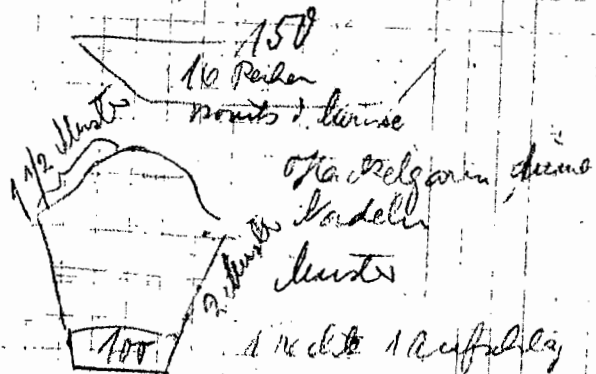 150
16 Reihen
1 1/2 Muster
Häkelgarn dünne
Nadeln
2 Muster
Muster
100
1 rechte 1 Aufschlag